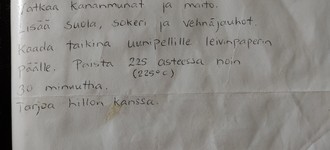 Vatkaa kananmunat ja maito.
Lisää suola, sokeri ja vehnäjauhot.
Kaada taikina uunipellille leivinpaperin
päälle. Paista 225 asteessa noin
(225°C)
30 minuuttia.
Tarjoa hillon kanssa.